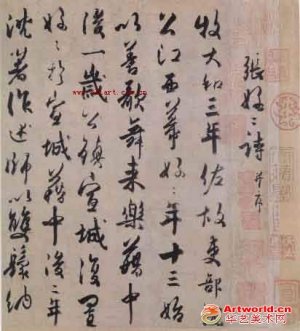 張好〻詩 并序
牧大和三年佐故吏部
公江西幕好〻年十三始
以善歌舞來樂籍中
後一歲公鎮宣城復置
好〻於宣城籍中後二年
沈著作述師以雙鬟納
Artworld.cn
华艺美术网